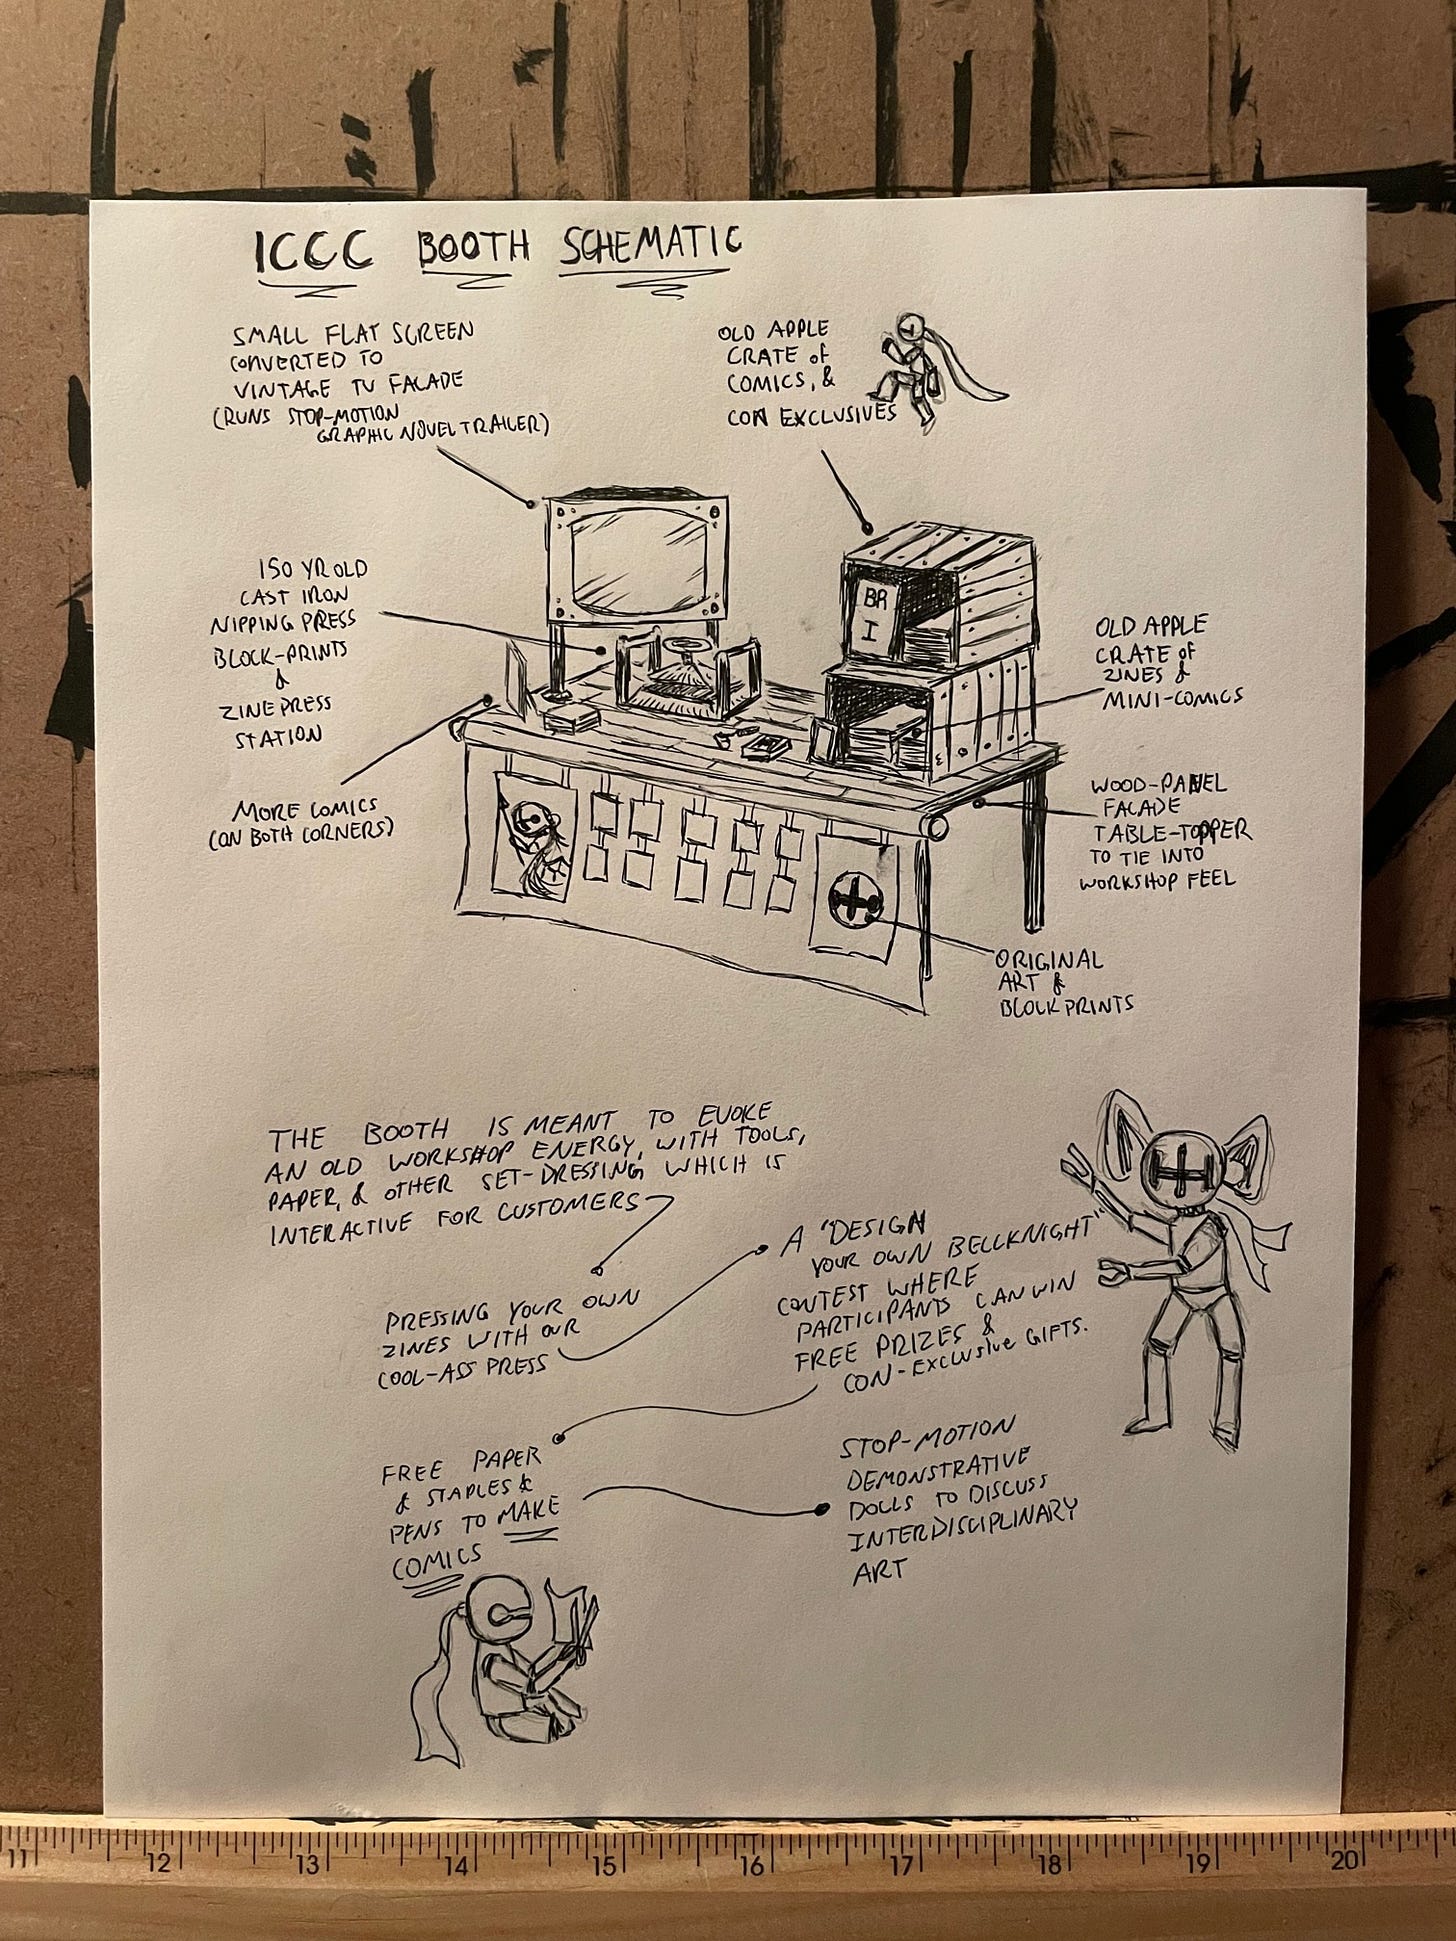 ICCC BOOTH SCHEMATIC
SMALL FLAT SCREEN
CONVERTED TO
VINTAGE TV FACADE
(RUNS STOP-MOTION
GRAPHIC NOVEL TRAILER)
OLD APPLE
CRATE of
COMICS, &
CON EXCLUSIVES
150 YR OLD
CAST IRON
NIPPING PRESS
BLOCK-PRINTS
&
ZINE PRESS
STATION
MORE COMICS
(ON BOTH CORNERS)
BR
I
OLD APPLE
CRATE of
ZINES &
MINI-COMICS
WOOD-PANEL
FACADE
TABLE-TOPPER
TO TIE INTO
WORKSHOP FEEL
ORIGINAL
ART &
BLOCKPRINTS
THE BOOTH IS MEANT TO EVOKE
AN OLD WORKSHOP ENERGY, WITH TOOLS,
PAPER, & OTHER SET-DRESSING WHICH IS
INTERACTIVE FOR CUSTOMERS
PRESSING YOUR OWN
ZINES WITH OUR
COOL-ASS PRESS
A "DESIGN
YOUR OWN BELLKNIGHT"
CONTEST WHERE
PARTICIPANTS CAN WIN
FREE PRIZES &
CON-EXCLUSIVE GIFTS.
FREE PAPER
& STAPLES &
PENS TO MAKE
COMICS
STOP-MOTION
DEMONSTRATIVE
DOLLS TO DISCUSS
INTERDISCIPLINARY
ART
11 12 13 14 15 16 17 18 19 20